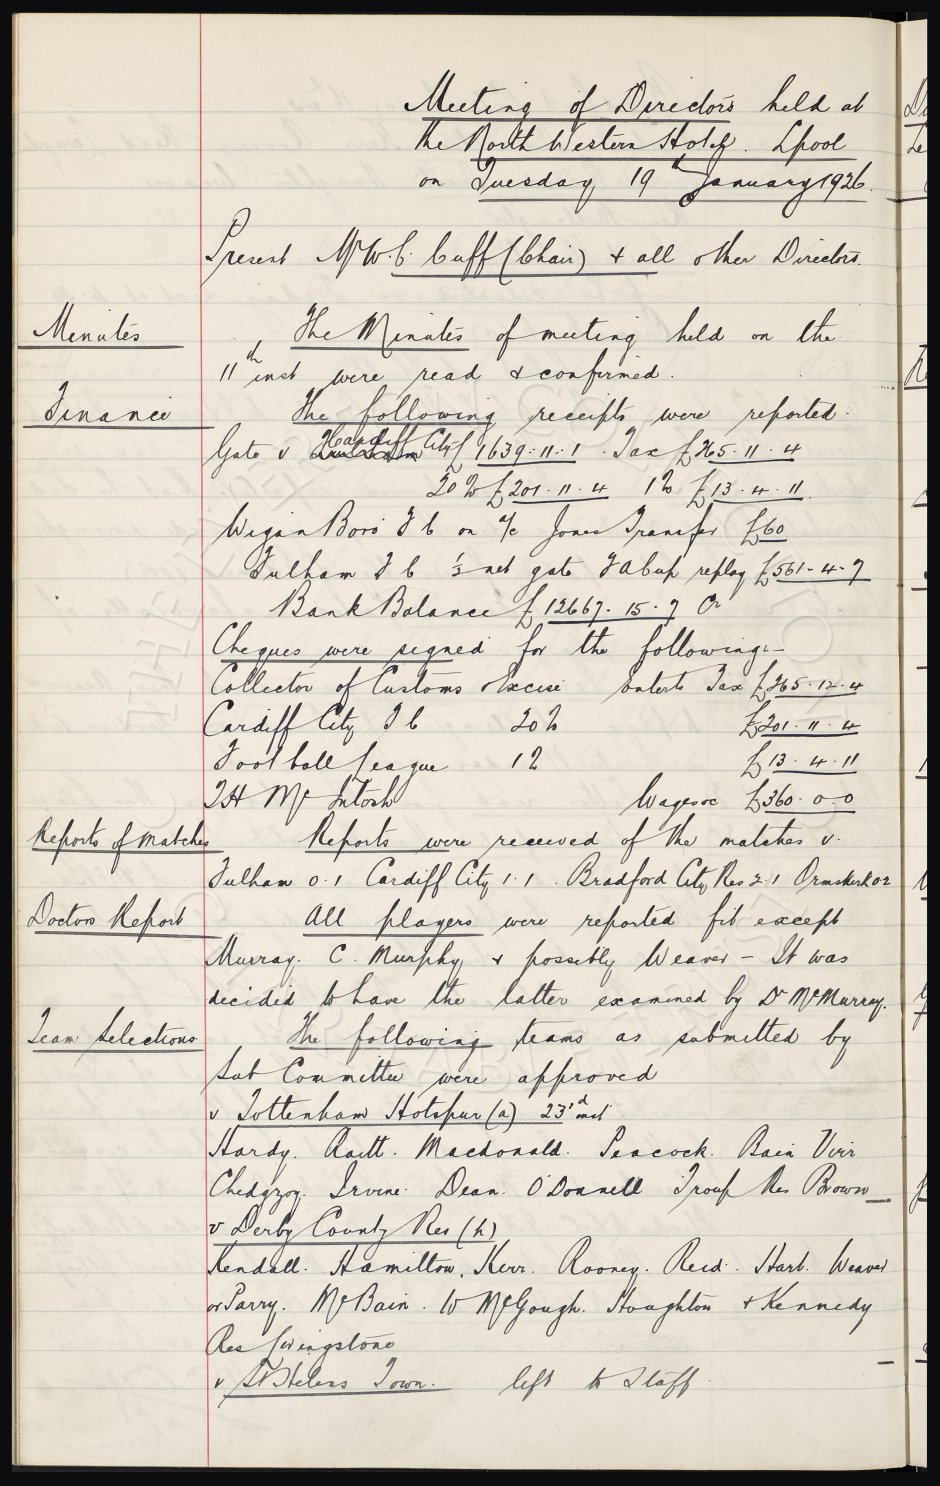 Meeting of Directors held at
the North Western Hotel. Lpool
on Tuesday 19th January 1926.
Present Mr W. C. Cuff (Chair) & all other Directors.
Minutes The Minutes of meeting held on the
11th inst were read & confirmed.
Finance The following receipts were reported.
Gate v Cardiff City £1639.11.1. Tax £365.11.4
20% £201.11.4 1% £13.4.11
Wigan Boro F C on a/c Jones Transfer £60
Fulham F C ½ net gate FA Cup replay £561-4-7
Bank Balance £12667.15.7 Cr
Cheques were signed for the following:-
Collector of Customs & Excise Enterts Tax £365.12.4
Cardiff City F C 20% £201.11.4
Football League 1% £13.4.11
T H McIntosh Wages &c £360.0.0
Reports of Matches Reports were received of the matches v.
Fulham 0.1 Cardiff City 1.1. Bradford City Res 2.1 Ormskirk 0 2
Doctors Report All players were reported fit except
Murray. C. Murphy & possibly Weaver - It was
decided to have the latter examined by Dr McMurray.
Team Selections The following teams as submitted by
Sub Committee were approved
v Tottenham Hotspur (a) 23rd inst
Hardy. Raitt. Macdonald. Peacock. Bain Virr
Chedgzoy. Irvine. Dean. O'Donnell Troup Res Brown
v Derby County Res (h)
Kendall. Hamilton. Kerr. Rooney. Reid. Hart. Weaver
or Parry. McBain. W McGough. Houghton & Kennedy
Res Livingstone
v St Helens Town. left to Staff